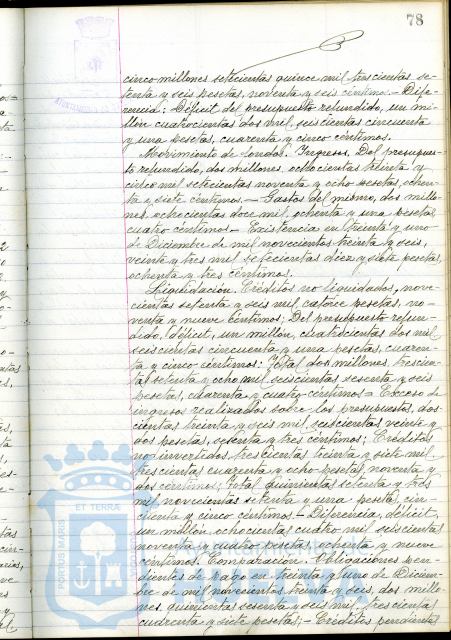 78
cinco millones setecientas quince mil trescientas se-
tenta y seis pesetas, noventa y seis céntimos.- Dife-
rencia: Déficit del presupuesto refundido, un mi-
llón cuatrocientas dos mil seiscientas cincuenta
y una pesetas, cuarenta y cinco céntimos.-
Movimiento de fondos. Ingresos. Del presupues-
to refundido, dos millones, ochocientas treinta y
cinco mil setecientas noventa y ocho pesetas, ochen-
ta y siete céntimos.- Gastos del mismo, dos millo-
nes, ochocientas doce mil, ochenta y una pesetas
cuatro céntimos.- Existencia en treinta y uno
de Diciembre de mil novecientos treinta y seis,
veinte y tres mil setecientas diez y siete pesetas,
ochenta y tres céntimos.
Liquidación. Créditos no liquidados, nove-
cientas setenta y seis mil catorce pesetas, no-
venta y nueve céntimos; Del presupuesto refun-
dido, déficit, un millón, cuatrocientas dos mil
seiscientas cincuenta y una pesetas, cuaren-
ta y cinco céntimos: Total dos millones, trescien-
tas setenta y ocho mil seiscientas sesenta y seis
pesetas, cuarenta y cuatro céntimos.- Exceso de
ingresos realizados sobre los presupuestos, dos-
cientas treinta y seis mil, seiscientas veinte y
dos pesetas, setenta y tres céntimos; Créditos
no invertidos trescientas treinta y siete mil,
trescientas cuarenta y ocho pesetas, noventa y
dos céntimos; Total quinientas setenta y tres
mil, novecientas setenta y una pesetas, cin-
cuenta y cinco céntimos.- Diferencia, déficit,
un millón ochocientas cuatro mil seiscientas
noventa y cuatro pesetas, ochenta y nueve
céntimos. Comparación. Obligaciones pen-
dientes de pago en treinta y uno de Diciem-
bre de mil novecientos treinta y seis, dos millo-
nes, quinientas sesenta y seis mil, trescientas
cuarenta y siete pesetas;- Créditos pendientes
PORTUS MARIS
ET TERRÆ